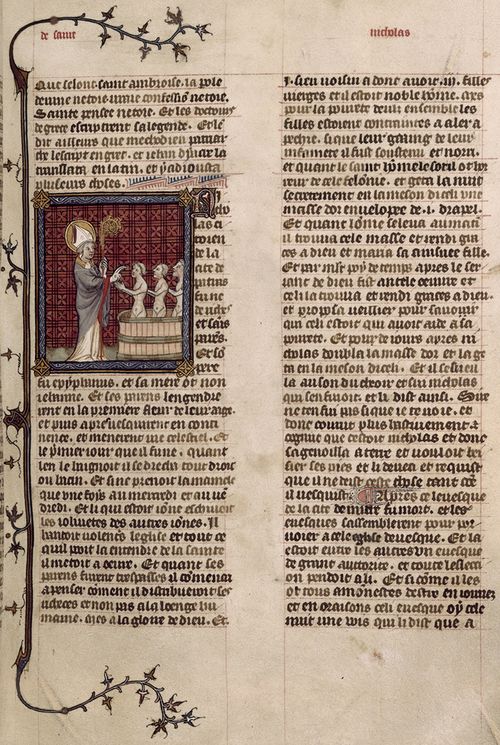 de saint
nicholas
Que selont saint ambroise. la pole
devine netoie. vraie confession netoie.
Sainte pensee netoie. Et les docteurs
de grece escriprent sa legende. Et le
dit ailleurs que methodien patriar
che lescript en grec. et iehan dyacre la
translata en latin. et y adiousta
pluseurs choses.
Nicho
las ci
toien
de la
cite de
patras
fu ne
de riches
et sains
parens.
Et son
pere
fu epyphanus. et sa mere ot non
iehanne. Et ses parens lengendre
rent en la premiere fleur de leur aage.
et puis apres vesquirent en conti
nence. et menerent vie celestiel. Et
le premier iour que il fu ne. quant
len le baignoit il se drecha tout droit
ou bacin. Et si ne prenoit la mamele
que une fois au mercredi et au ven
dredi. Et li qui estoit ione eschivoit
les iolivetes des autres iones. Il
hantoit volentiers leglise et tout ce
quil pooit la entendre de la sainte
il metoit a oevre. Et quant ses
parens furent trespasses il commenca
a penser comment il distribueroit ses
richeces et non pas a la loenge hu
maine. mes a la gloire de dieu. Et
.i. sien voisin adonc avoit .iii. filles
vierges et il estoit noble homme. mes
pour la povrete deuls ensemble les
filles estoient contraintes a aler a
pechie. si que leur gaaing de leur
infamete il fust soustenu et norri.
et quant le saint homme le sot il ot hor
reur de cele felonie. et geta la nuit
secreement en la meson diceli une
masse dor envelopee de .i. drapel.
Et quant lomme se leva au matin
il trouva cele masse et rendi gra
ces a dieu et maria sa ainsnee fille.
Et par .i. poy de temps apres le ser
iant de dieu fist autele oeuvre et
celi la trouva et rendi graces a dieu.
et proposa veillier pour savoir
qui celi estoit qui avoit aide a sa
povrete. Et pour de iours apres ni
cholas doubla la masse dor et la ge
ta en la meson diceli. Et il sesveilla
au son du cheoir et sui nicholas
qui sen fuioit. et li dist ainsi. Sire
ne ten fui pas si que ie te voie. et
donc courut plus hastivement et
cognut que cestoit nicholas et donc
sagenoilla a terre et vouloit be
sier ses pies et li devea et requist
que il ne deist ceste chose tant com
il vesquist. Apres ce levesque
de la cite de mirre fu mort. et les
evesques sassemblerent pour por
voier a cele eglise devesque. Et la
estoit entre les autres un evesque
de grant auctorite. et toute lelection
pendoit a li. Et si come il les
ot tous amonestes destre en ieunes
et en oroisons celi evesque oy cele
nuit une vois qui li dist que a